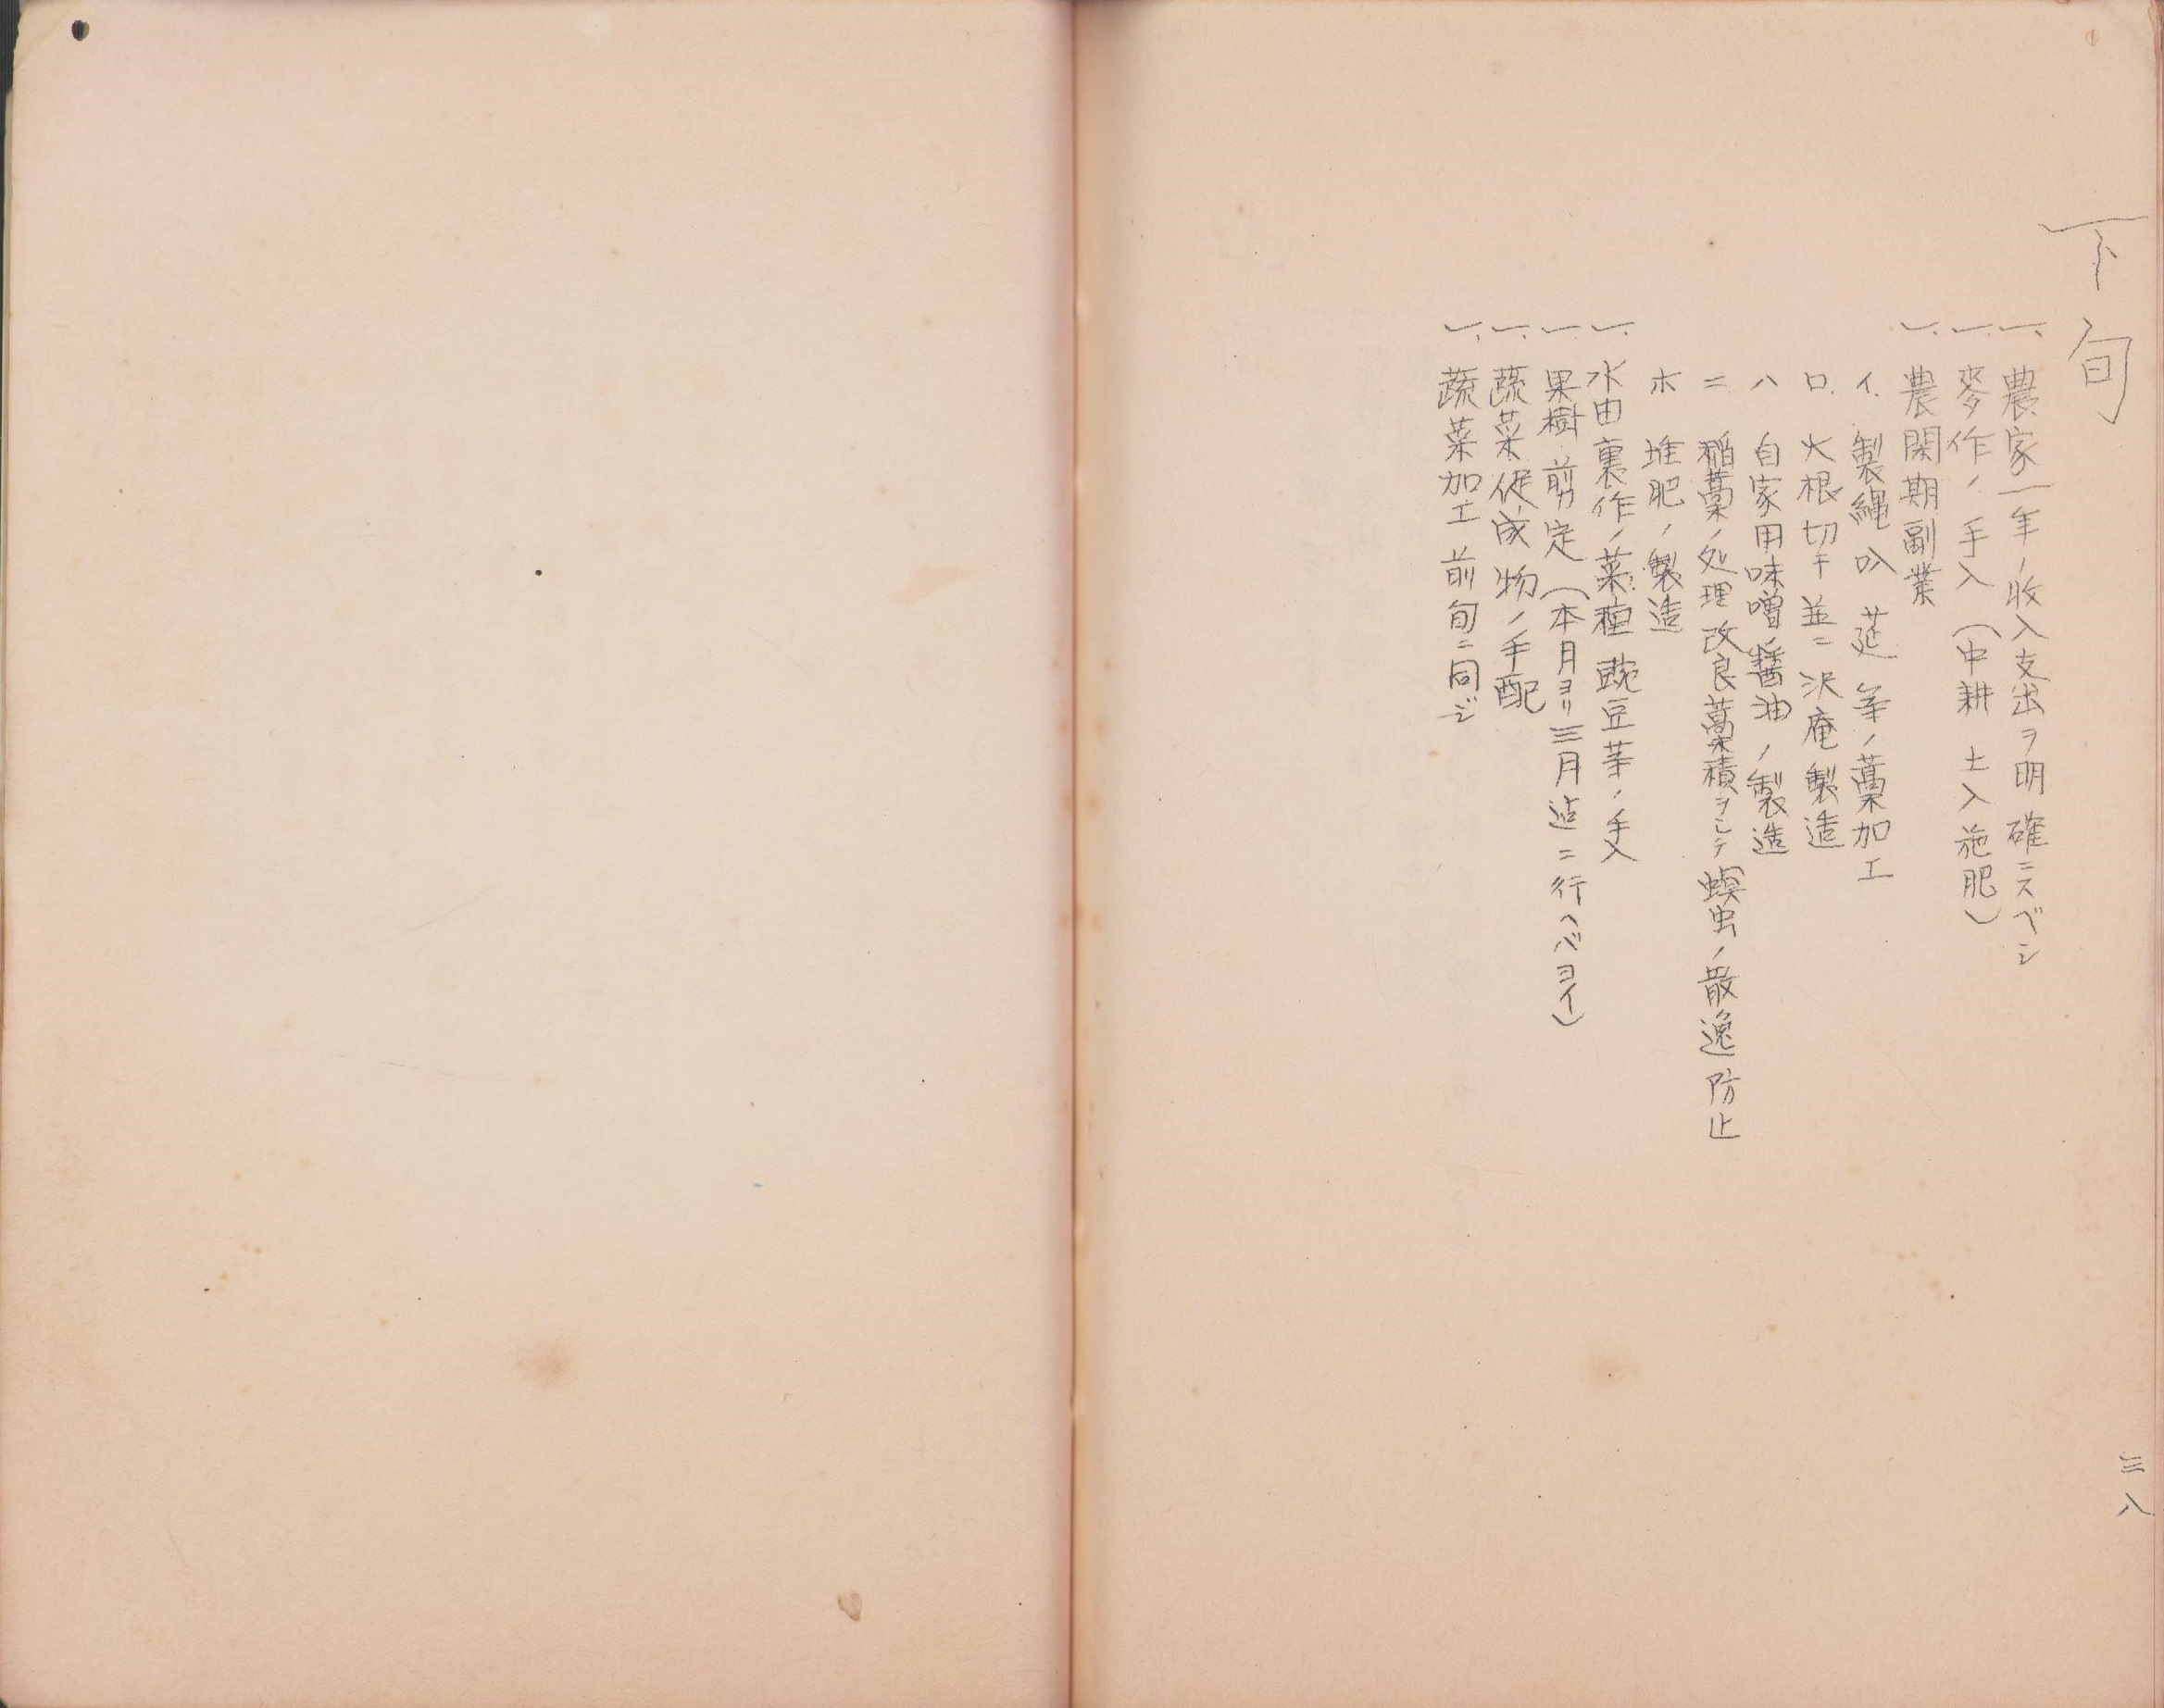 下旬
一、農家一年ノ收入支出ヲ明確ニスベシ
一、麥作ノ手入（中耕 土入 施肥）
一、農閑期副業
イ、製縄 叺 莚 等ノ藁加工
ロ、大根切干並ニ沢庵製造
ハ 自家用味噌醤油ノ製造
ニ 稲藁ノ処理改良藁積ヲシテ螟虫ノ散逸防止
ホ 堆肥ノ製造
一、水田裏作ノ菜種 豌豆等ノ手入
一、果樹剪定（本月ヨリ三月迠ニ行ヘバヨイ）
一、蔬菜促成物ノ手配
一、蔬菜加工 前旬ニ同ジ
三八